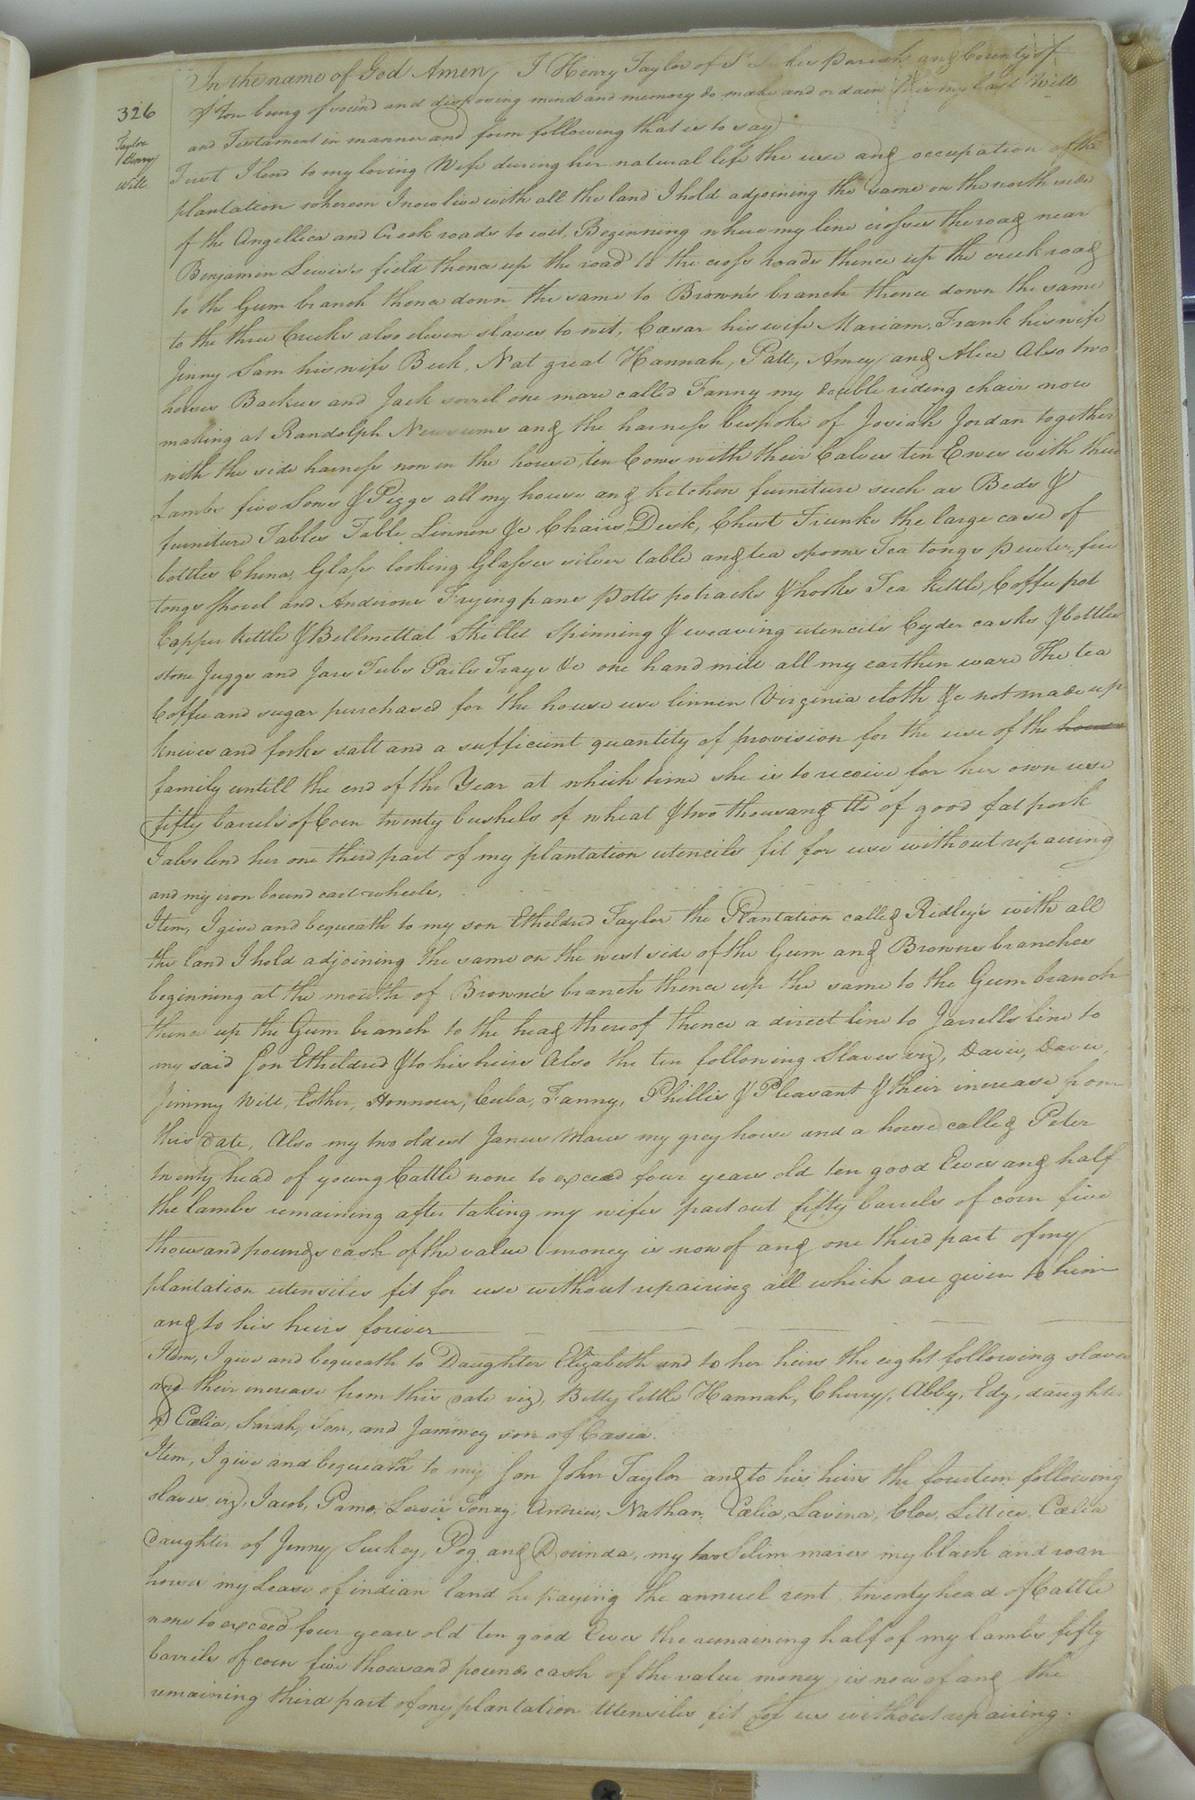 326
Taylor
Henry
Will
In the name of God Amen, I Henry Taylor of Parish and County of
being of sound and disposing mind and memory do make and ordain this my last Will
and Testament in manner and form following that is to say
First I lend to my loving Wife during her natural life the use and occupation of the
plantation whereon I now live with all the land I hold adjoining the same on the north side
of the Angellica and Creek roads to wit, Beginning where my line crosses the road near
Benjamen Lewis's field thence up the road to the cross roads thence up the creek road
to the Gum branch thence down the same to Brown's branch thence down the same
to the three Creeks also eleven slaves to wit, Caesar his wife Mariam, Frank his wife
Jinny Sam his wife Beck, Nat great Hannah, Patt, Amey and Alice Also two
horses Backus and Jack sorrel one mare called Fanny my double riding chair now
making at Randolph Newsums and the harness bespoke of Josiah Jordan together
with the side harness now in the house, ten Cows with their Calves ten Ewes with their
Lambs five Sows & Piggs all my house and kitchen furniture such as Beds &
furniture Tables Table Linnen &c Chairs Desk, Chest Trunks the large case of
bottles China, Glass looking Glasses silver table and tea spoons Tea tongs pewter, fire
tongs shovel and Andirons Frying pans Potts potracks & hooks Tea kettle, Coffee pot
Copper kettle & Bellmettal Skillet Spinning & weaving utencils Cyder casks & bottles
stone Juggs and Jars Tubs Pails Trays &c one hand mill all my earthen ware The tea
Coffee and sugar purchased for the house use linnen Virginia cloth &c not made up
knives and forks salt and a sufficient quantity of provision for the use of the house
family untill the end of the Year at which time she is to receive for her own use
fifty barrels of Corn twenty bushels of wheat & two thousand lbs of good fat pork
I also lend her one third part of my plantation utencils fit for use without repairing
and my iron bound cart wheels,
Item, I give and bequeath to my son Etheldred Taylor the Plantation called Ridley's with all
the land I hold adjoining the same on the west side of the Gum and Browns branches
beginning at the mouth of Browne's branch thence up the same to the Gum branch
thence up the Gum branch to the head thereof thence a direct line to Jarrells line to
my said Son Etheldred & to his heirs Also the ten following Slaves viz, Davie, Davie,
Jimmy Will, Esther, Honnour, Cuba, Fanny, Phillis & Pleasant & their increase from
this date, Also my two oldest Janus Mares my grey horse and a horse called Peter
twenty head of young Cattle none to exceed four years old ten good Ewes and half
the lambs remaining after taking my wifes part out fifty barrels of corn five
thousand pounds cash of the value money is now of and one third part of my
plantation utensiles fit for use without repairing all which are given to him
and to his heirs forever
Item, I give and bequeath to Daughter Elizabeth and to her heirs the eight following slaves
and their increase from this date viz, Betty, little Hannah, Cherry, Abby, Edy, daughter
of Cælia, Sarah, Tom, and Jammey son of Casea.
Item, I give and bequeath to my Son John Taylor and to his heirs the fourteen following
slaves viz, Jacob, Pamo, Lewis Toney, Andrew, Nathan, Cælia, Lavina, Cloe, Lettice, Cælia
daughter of Jenny Suckey, Peg and Dorinda, my two Selim mares my black and roan
horses my Lease of indian land he paying the annuel rent, twenty head of Cattle
none to exceed four years old ten good Ewes the remaining half of my lambs fifty
barrils of corn five thousand pounds cash of the value money is now of and the
remaining third part of my plantation Utensiles fit for use without repairing.